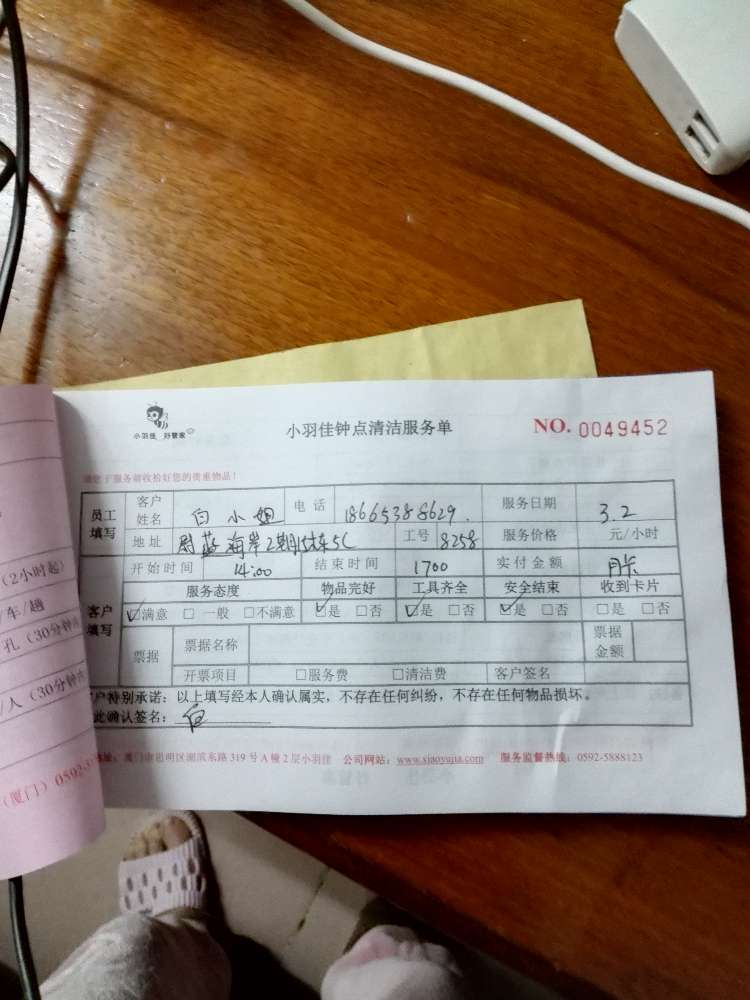 小羽佳 好管家
小羽佳钟点清洁服务单
NO. 0049452
请您于服务前收拾好您的贵重物品！
员工填写 客户姓名 白小姐 电话 18665388629. 服务日期 3.2
地址 蔚蓝海岸2期 工号 8258 服务价格 元/小时
开始时间 14:00 结束时间 1700 实付金额 月卡
客户填写 服务态度 物品完好 工具齐全 安全结束 收到卡片
☑满意 □一般 □不满意 ☑是 □否 ☑是 □否 ☑是 □否 □是 □否
票据 票据名称 票据金额
开票项目 □服务费 □清洁费 客户签名
客户特别承诺：以上填写经本人确认属实，不存在任何纠纷，不存在任何物品损坏。
此确认签名：白
地址：厦门市思明区湖滨东路319号A幢2层小羽佳 公司网站：www.xiaoyujia.com 服务监督热线：0592-5888123
（2小时起）
/车/趟
孔（30分钟
/人（30分钟
（厦门）0592-